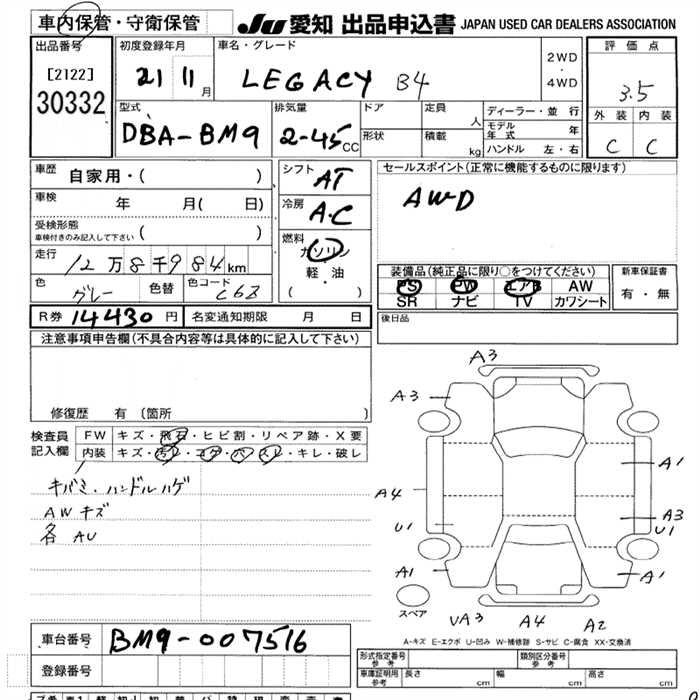 車内保管・守衛保管 JU 愛知 出品申込書 JAPAN USED CAR DEALERS ASSOCIATION
出品番号
[2122]
30332
初度登録年月
21 11 月
車名・グレード
LEGACY B4
2WD
・
4WD
評価点
3.5
外装 内装
C C
型式
DBA-BM9
排気量
2-45 CC
ドア
形状
定員
人
積載
kg
ディーラー・並行
モデル年式 年
ハンドル 左・右
車歴 自家用・( )
車検 年 月( 日)
受検形態
車検付きのみ記入して下さい ( )
走行 12万8千984km
色 グレー 色替 色コード C6Z
シフト AT
冷房 A-C
燃料
ガソリン
軽・油
( )
セールスポイント(正常に機能するものに限ります)
AWD
装備品(純正品に限り○をつけてください)
PS PW エアB AW
SR ナビ TV カワシート
新車保証書
有・無
R券 14430 円 名変通知期限 月 日
後日品
注意事項申告欄(不具合内容等は具体的に記入して下さい)
修復歴 有 (箇所 )
検査員
記入欄
FW キズ・飛石・ヒビ割・リペア跡・X要
内装 キズ・汚レ・コゲ・穴・スレ・キレ・破レ
キバミ・ハンドルハゲ
AWキズ
各 AU
A3
A3
A1
A4
A3
U1
U1
A1
A1
スペア
UA3 A4 A2
A-キズ E-エクボ U-凹み W-補修跡 S-サビ C-腐食 XX-交換済
車台番号 BM9-007516
登録番号
形式指定番号 参考
類別区分番号 参考
車庫証明用 参考 長さ cm 幅 cm 高さ cm